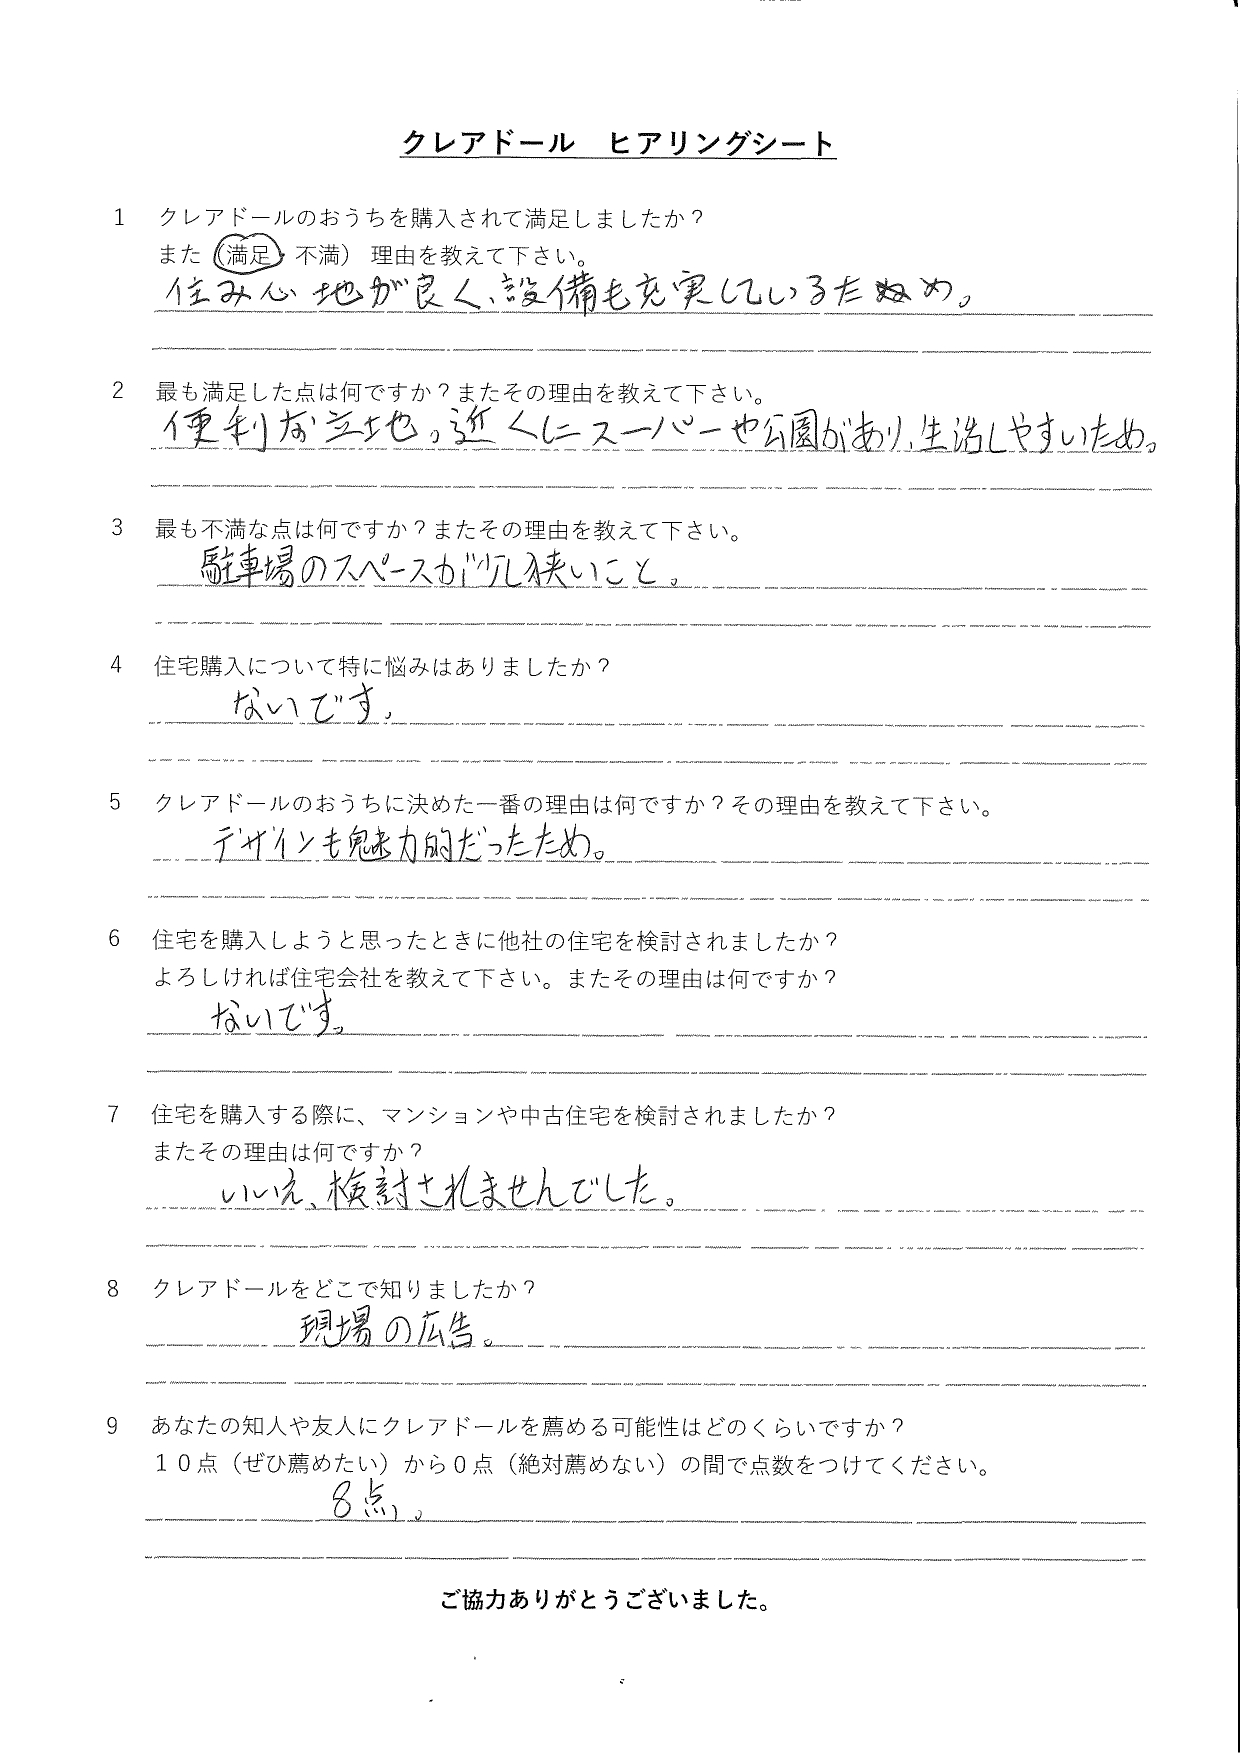 クレアドール　ヒアリングシート
1　クレアドールのおうちを購入されて満足しましたか？
また（満足・不満）理由を教えて下さい。
住み心地が良く、設備も充実しているため。
2　最も満足した点は何ですか？またその理由を教えて下さい。
便利な立地。近くにスーパーや公園があり、生活しやすいため。
3　最も不満な点は何ですか？またその理由を教えて下さい。
駐車場のスペースが少し狭いこと。
4　住宅購入について特に悩みはありましたか？
ないです。
5　クレアドールのおうちに決めた一番の理由は何ですか？その理由を教えて下さい。
デザインも魅力的だったため。
6　住宅を購入しようと思ったときに他社の住宅を検討されましたか？
よろしければ住宅会社を教えて下さい。またその理由は何ですか？
ないです。
7　住宅を購入する際に、マンションや中古住宅を検討されましたか？
またその理由は何ですか？
いいえ、検討されませんでした。
8　クレアドールをどこで知りましたか？
現場の広告。
9　あなたの知人や友人にクレアドールを薦める可能性はどのくらいですか？
１０点（ぜひ薦めたい）から０点（絶対薦めない）の間で点数をつけてください。
8点。
ご協力ありがとうございました。